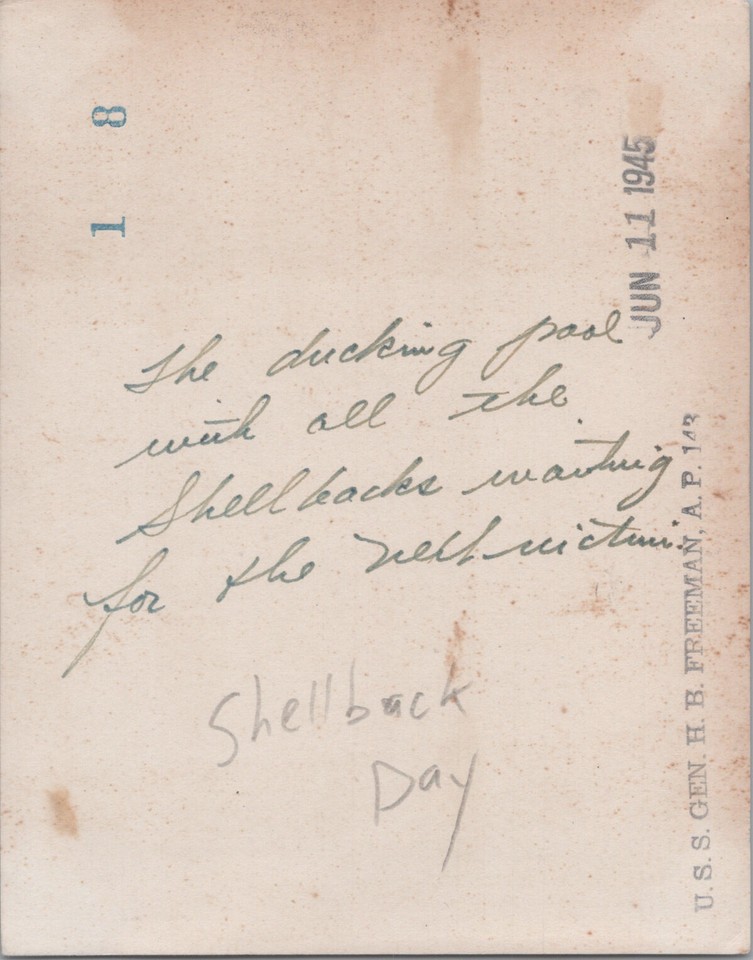 1 8
JUN 11 1945
The ducking pool
with all the
Shellbacks waiting
for the next victim.
Shellback
Day
U.S.S. GEN. H. B. FREEMAN, A.P. 143